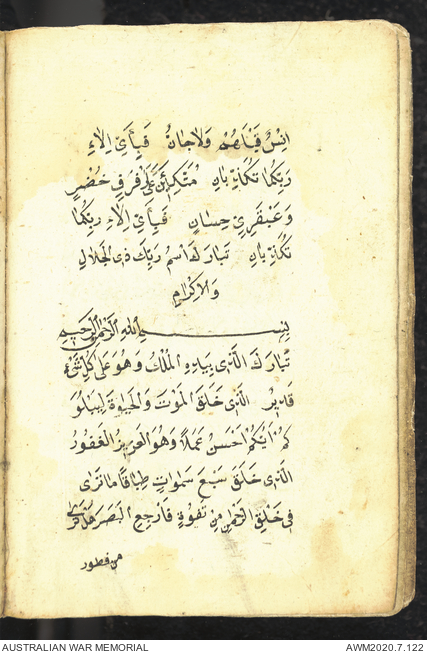 اِنْسٌ قَبْلَهُمْ وَلَا جَانٌّ فَبِأَيِّ اٰلَاءِ
رَبِّكُمَا تُكَذِّبَانِ مُتَّكِئِينَ عَلَى رَفْرَفٍ خُضْرٍ
وَعَبْقَرِيٍّ حِسَانٍ فَبِأَيِّ اٰلَاءِ رَبِّكُمَا
تُكَذِّبَانِ تَبَارَكَ اسْمُ رَبِّكَ ذِي الْجَلَالِ
وَالْاِكْرَامِ
بِسْمِ اللهِ الرَّحْمٰنِ الرَّحِيمِ
تَبَارَكَ الَّذِي بِيَدِهِ الْمُلْكُ وَهُوَ عَلَى كُلِّ شَيْءٍ
قَدِيرٌ الَّذِي خَلَقَ الْمَوْتَ وَالْحَيٰوةَ لِيَبْلُوَ
كُمْ اَيُّكُمْ اَحْسَنُ عَمَلًا وَهُوَ الْعَزِيزُ الْغَفُورُ
الَّذِي خَلَقَ سَبْعَ سَمٰوَاتٍ طِبَاقًا مَا تَرٰى
فِي خَلْقِ الرَّحْمٰنِ مِنْ تَفٰوُتٍ فَارْجِعِ الْبَصَرَ هَلْ تَرٰى
من فطور
AUSTRALIAN WAR MEMORIAL AWM2020.7.122